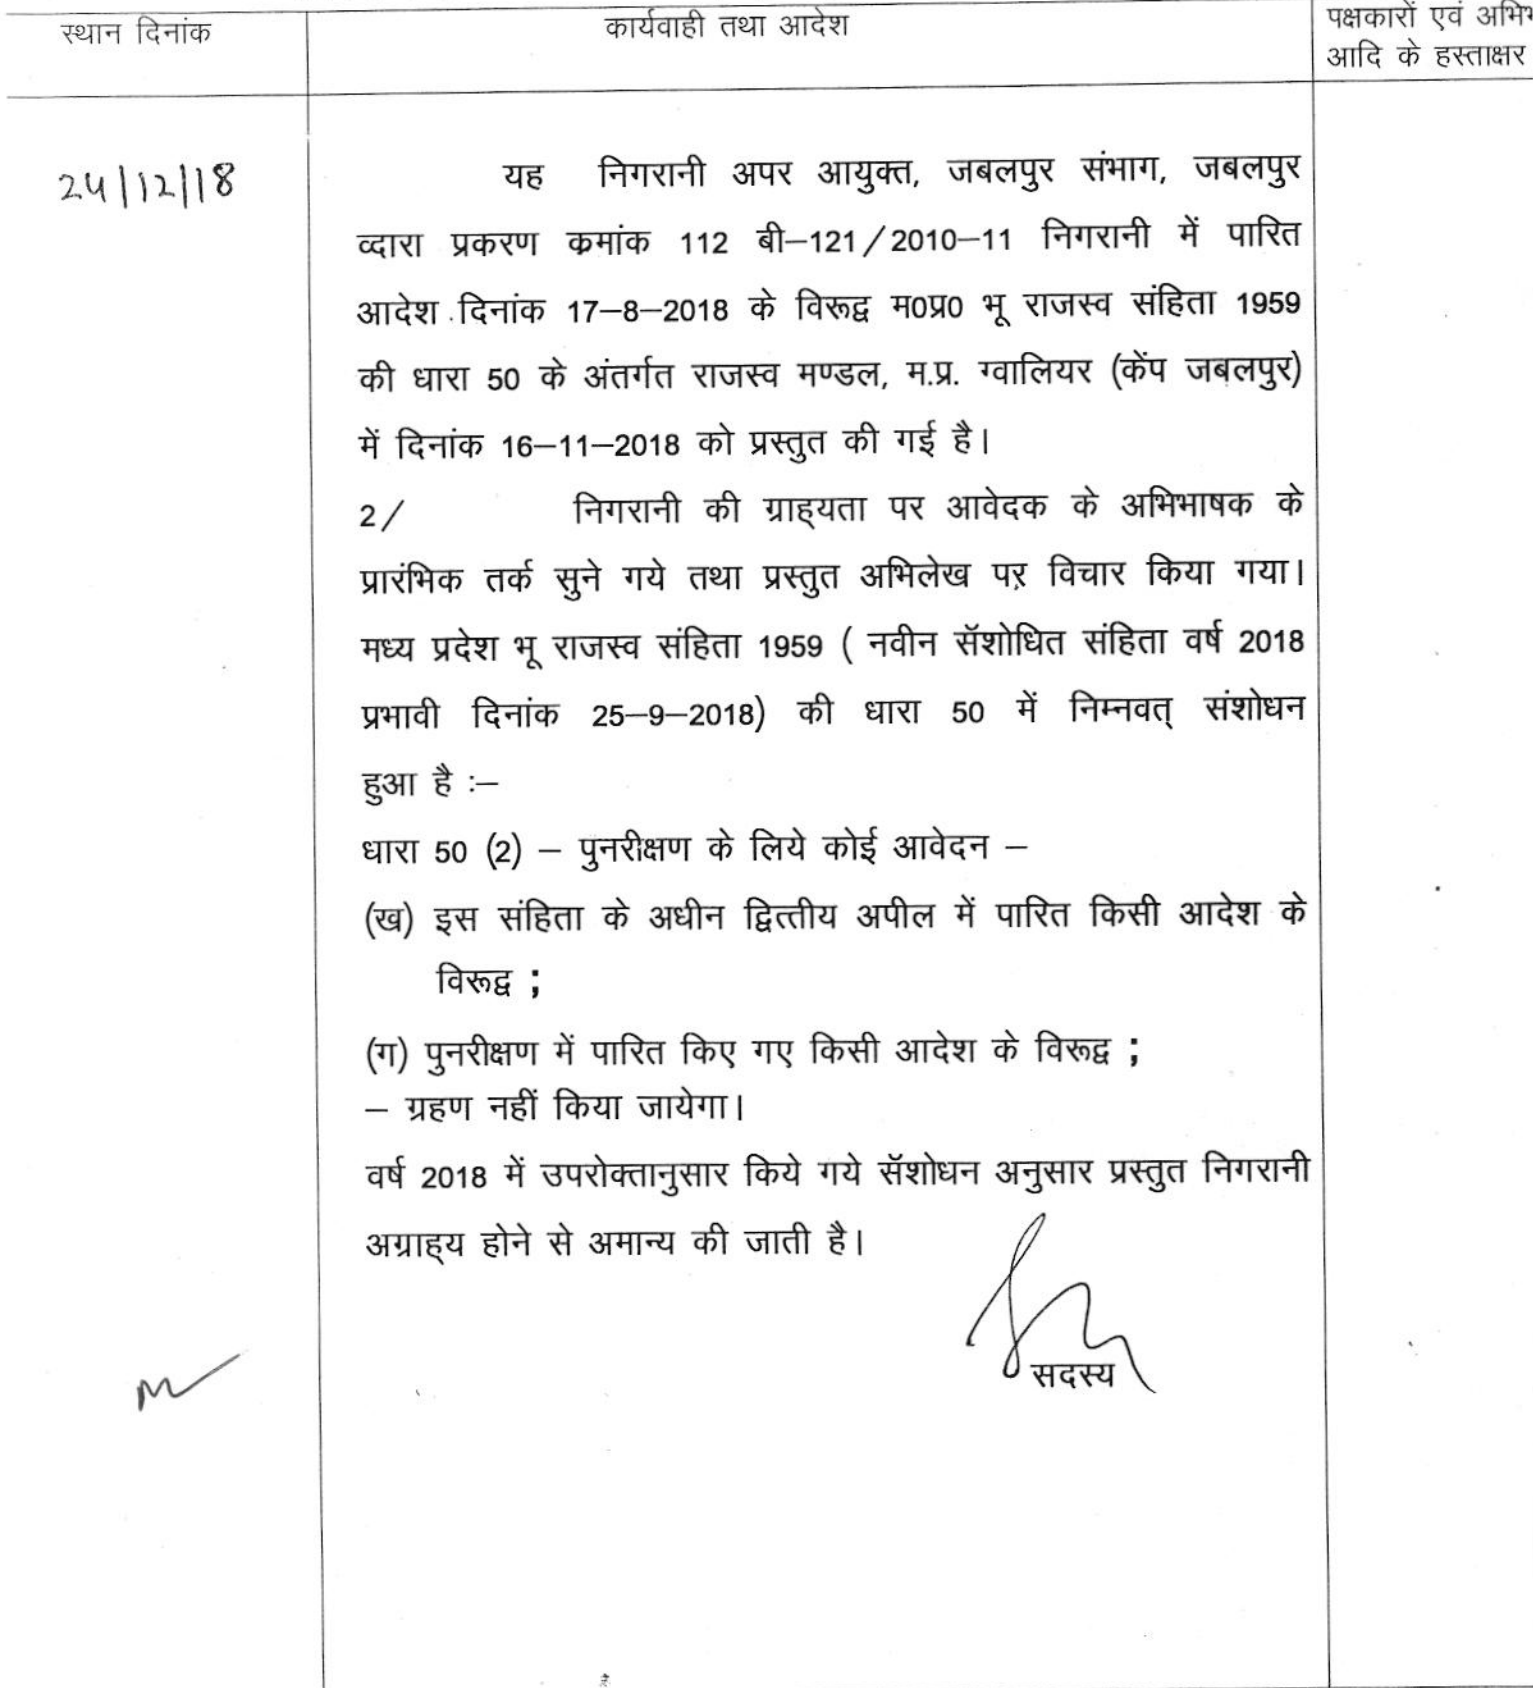 स्थान दिनांक
कार्यवाही तथा आदेश
पक्षकारों एवं
आदि के हस्ताक्षर
24/12/18
यह निगरानी अपर आयुक्त, जबलपुर संभाग, जबलपुर
व्दारा प्रकरण कमांक 112 बी–121/2010–11 निगरानी में पारित
आदेश दिनांक 17–8–2018 के विरूद्व म0प्र0 भू राजस्व संहिता 1959
की धारा 50 के अंतर्गत राजस्व मण्डल, म.प्र. ग्वालियर (केंप जबलपुर)
में दिनांक 16–11–2018 को प्रस्तुत की गई है।
2/ निगरानी की ग्राह्यता पर आवेदक के अभिभाषक के
प्रारंभिक तर्क सुने गये तथा प्रस्तुत अभिलेख पर विचार किया गया।
मध्य प्रदेश भू राजस्व संहिता 1959 ( नवीन सॅशोधित संहिता वर्ष 2018
प्रभावी दिनांक 25–9–2018) की धारा 50 में निम्नवत् संशोधन
हुआ है :–
धारा 50 (2) – पुनरीक्षण के लिये कोई आवेदन –
(ख) इस संहिता के अधीन द्वित्तीय अपील में पारित किसी आदेश के
विरूद्व ;
(ग) पुनरीक्षण में पारित किए गए किसी आदेश के विरूद्व ;
– ग्रहण नहीं किया जायेगा।
वर्ष 2018 में उपरोक्तानुसार किये गये सॅशोधन अनुसार प्रस्तुत निगरानी
अग्राह्य होने से अमान्य की जाती है।
सदस्य